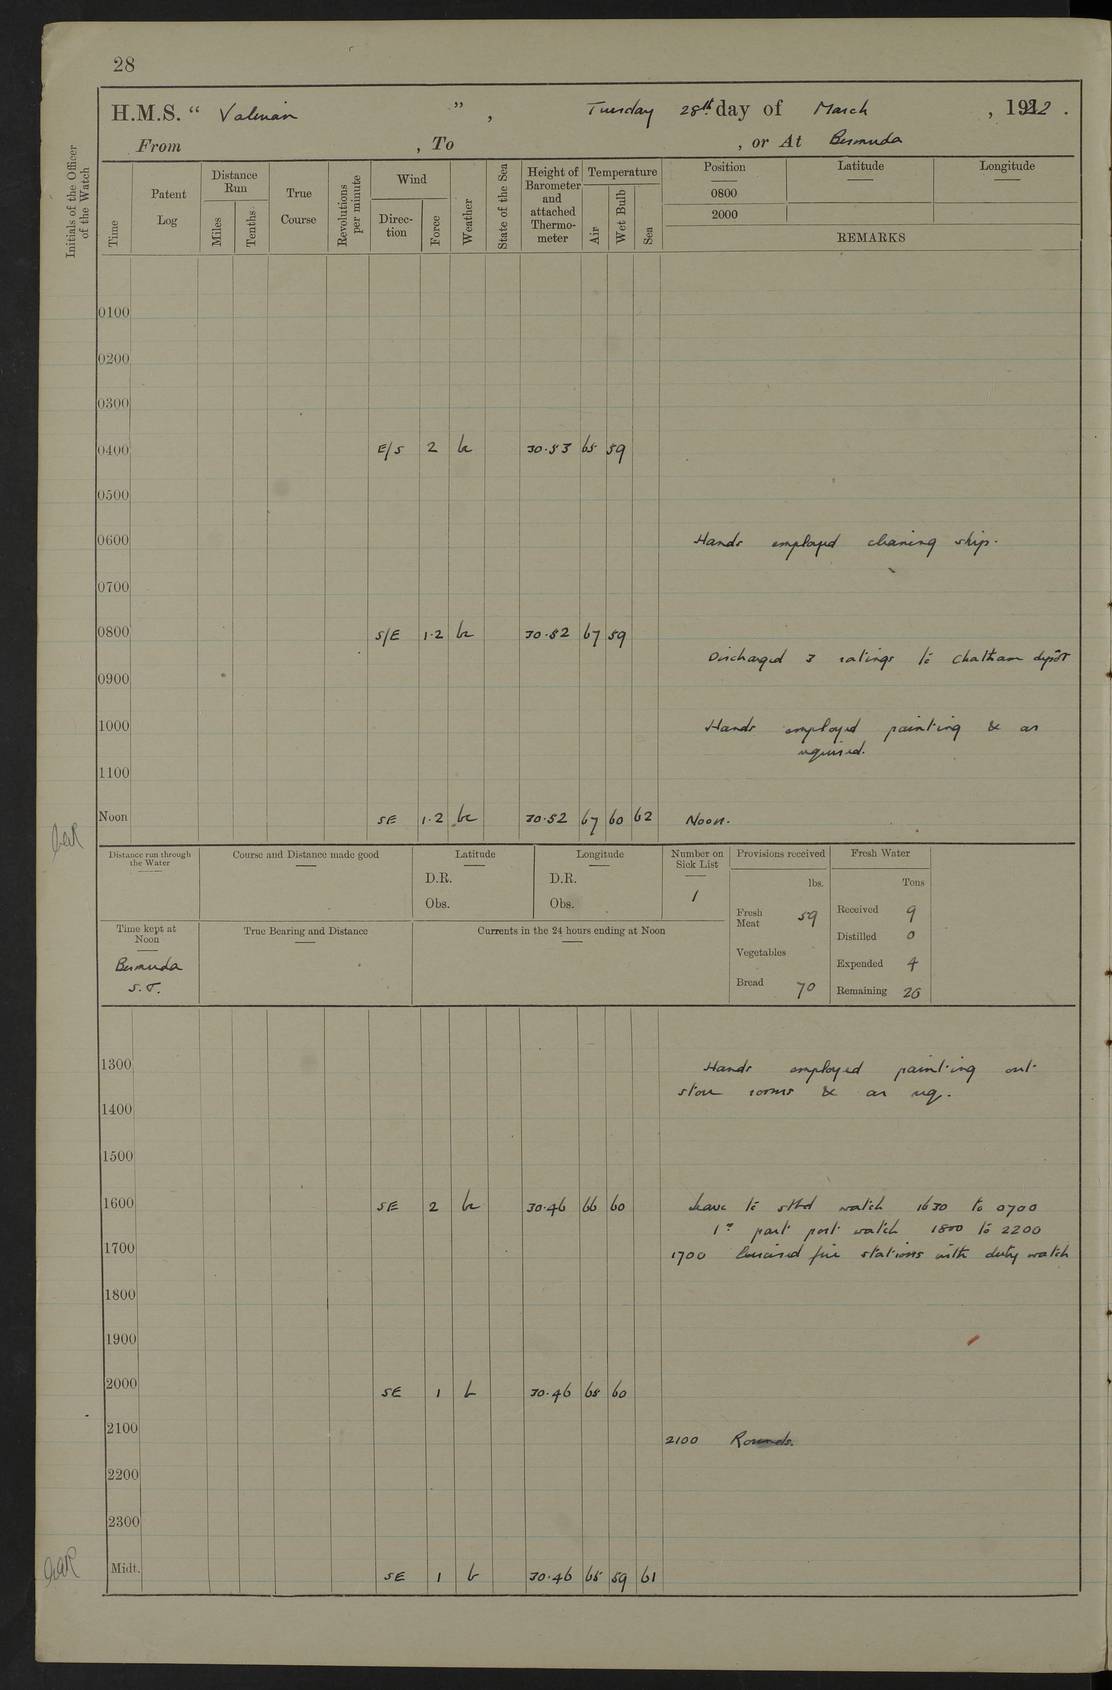 28
H.M.S. “ Valerian ”, Tuesday 28th day of March , 1922 .
From , To , or At Bermuda
Initials of the Officer of the Watch
Time
Patent Log
Distance Run
Miles
Tenths
True Course
Revolutions per minute
Wind
Direc-tion
Force
Weather
State of the Sea
Height of Barometer and attached Thermo-meter
Temperature
Air
Wet Bulb
Sea
Position Latitude Longitude
0800
2000
REMARKS
0100
0200
0300
0400 E/S 2 bc 30.53 65 59
0500
0600 Hands employed cleaning ship.
0700
0800 S/E 1.2 bc 30.52 67 59
Discharged 3 ratings to Chatham depôt
0900
1000 Hands employed painting & as
required.
1100
Noon SE 1.2 bc 30.52 67 60 62 Noon.
Distance run through the Water
Course and Distance made good
Latitude
D.R.
Obs.
Longitude
D.R.
Obs.
Number on Sick List
1
Provisions received
lbs.
Fresh Meat 59
Vegetables
Bread 70
Fresh Water
Tons
Received 9
Distilled 0
Expended 4
Remaining 26
Time kept at Noon
Bermuda
S.T.
True Bearing and Distance
Currents in the 24 hours ending at Noon
1300 Hands employed painting out
store rooms & as req.
1400
1500
1600 SE 2 bc 30.46 66 60 Leave to stbd watch 1630 to 0700
1st part port watch 1800 to 2200
1700 1700 Exercised fire stations with duty watch
1800
1900
2000 SE 1 b 30.46 65 60
2100 2100 Rounds.
2200
2300
Midt. SE 1 b 30.46 65 59 61